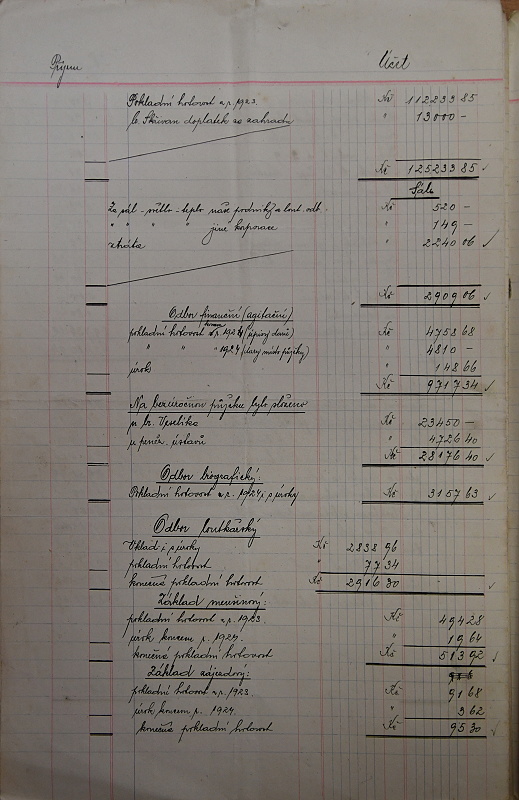 Příjem Účet
Pokladní hotovost z r. 1923. Kč 112233 85
br. Skřivan doplatek za zahradu " 13000 -
Kč 125233 85
Sál.
Za sál - světlo - teplo naše podniky a lout. odb. Kč 520 -
" " " " jiné korporace " 149 -
ztráta " 2240 06
Kč 2909 06
Odbor finanční (agitační)
pokladní hotovost koncem r. 1924 (úpisový dané) Kč 4758 68
" " " 1924 (dary místo půjčky) " 4810 -
úrok " 148 66
Kč 9717 34
Na bezúročnou půjčku bylo složeno
u br. Veselíka Kč 23450 -
u peněž. ústavů " 4726 40
Kč 28176 40
Odbor biografický:
Pokladní hotovost z r. 1924, s úroky Kč 3157 63
Odbor loutkářský
Vklad i s úroky Kč 2838 96
pokladní hotovost " 77 34
konečná pokladní hotovost Kč 2916 30
Základ menšinový:
pokladní hotovost z r. 1923. Kč 494 28
úrok koncem r. 1924. " 19 64
konečná pokladní hotovost Kč 513 92
Základ zájezdový:
pokladní hotovost z r. 1923 Kč 91 68
úrok koncem r. 1924 " 3 62
konečná pokladní hotovost Kč 95 30